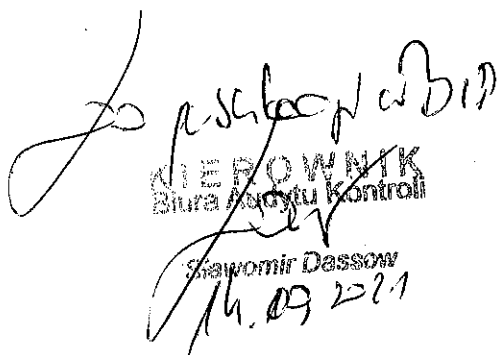 w BIP
KIEROWNIK
Biura Audytu Kontroli
Sławomir Dassow
14.09 2021